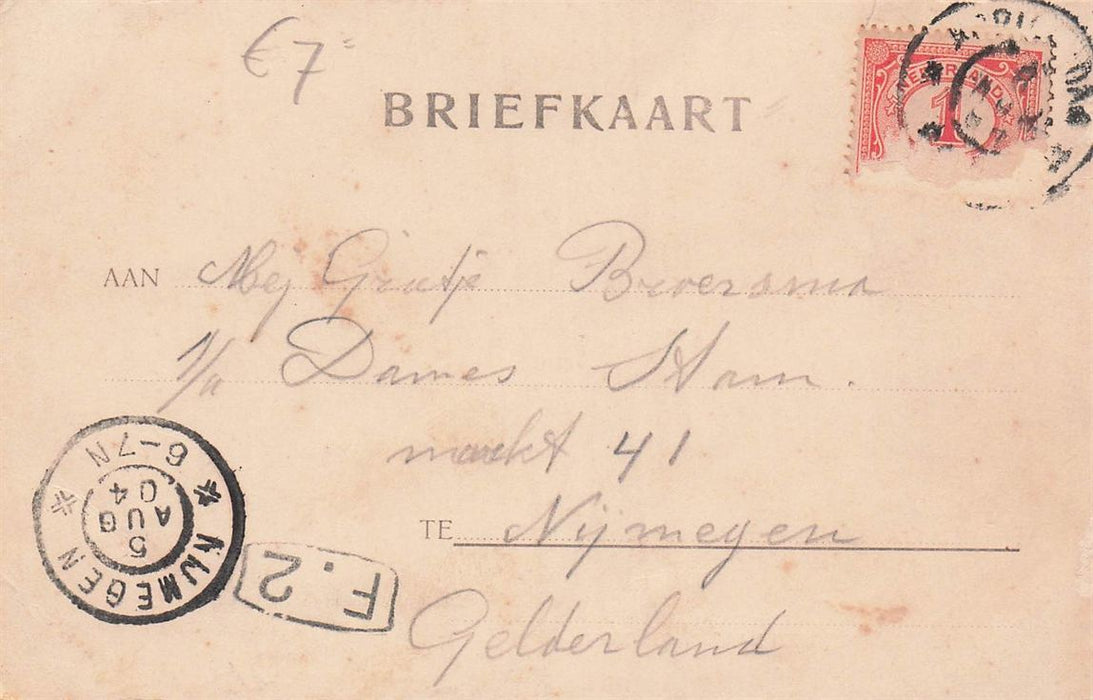 € 7=
BRIEFKAART
NEDERLAND
1
AAN Mej Grietje Broersma
p/a Dames Stam.
markt 41
TE Nijmegen
Gelderland
NIJMEGEN
5 AUG 04
6-7N
F.2